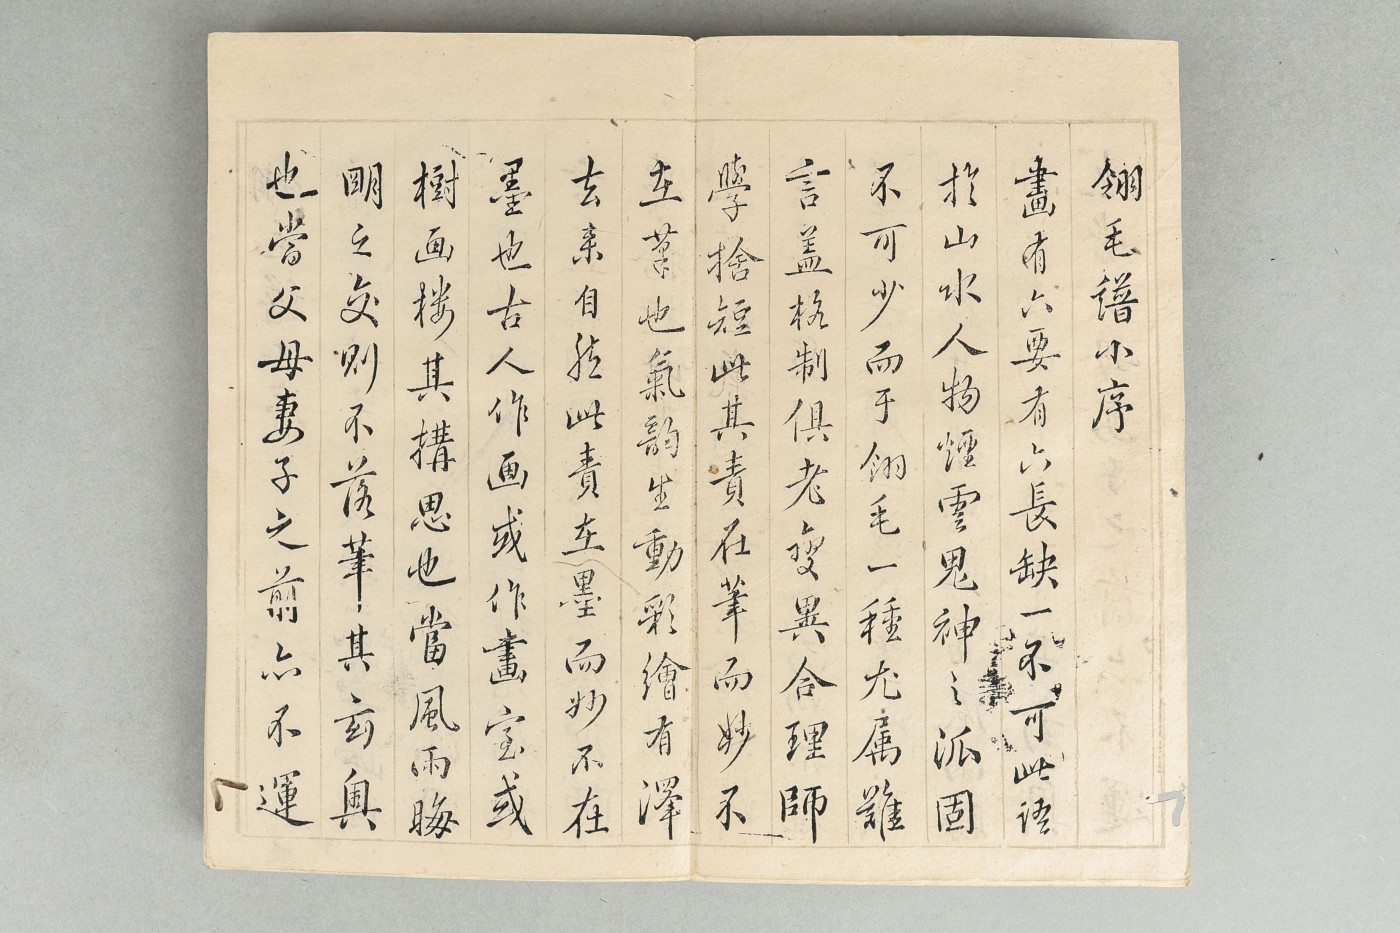 翎毛譜小序
畫有六要有六長缺一不可此語
於山水人物煙雲鬼神之派固
不可少而于翎毛一種尤属難
言蓋格制俱老變異合理師
學捨短此其責在筆而妙不
在筆也氣韵生動彩繪有澤
去来自然此責在墨而妙不在
墨也古人作画或作畫室或
樹画楼其構思也當風雨晦
明之交則不落筆其玄奥
也當父母妻子之前亦不運